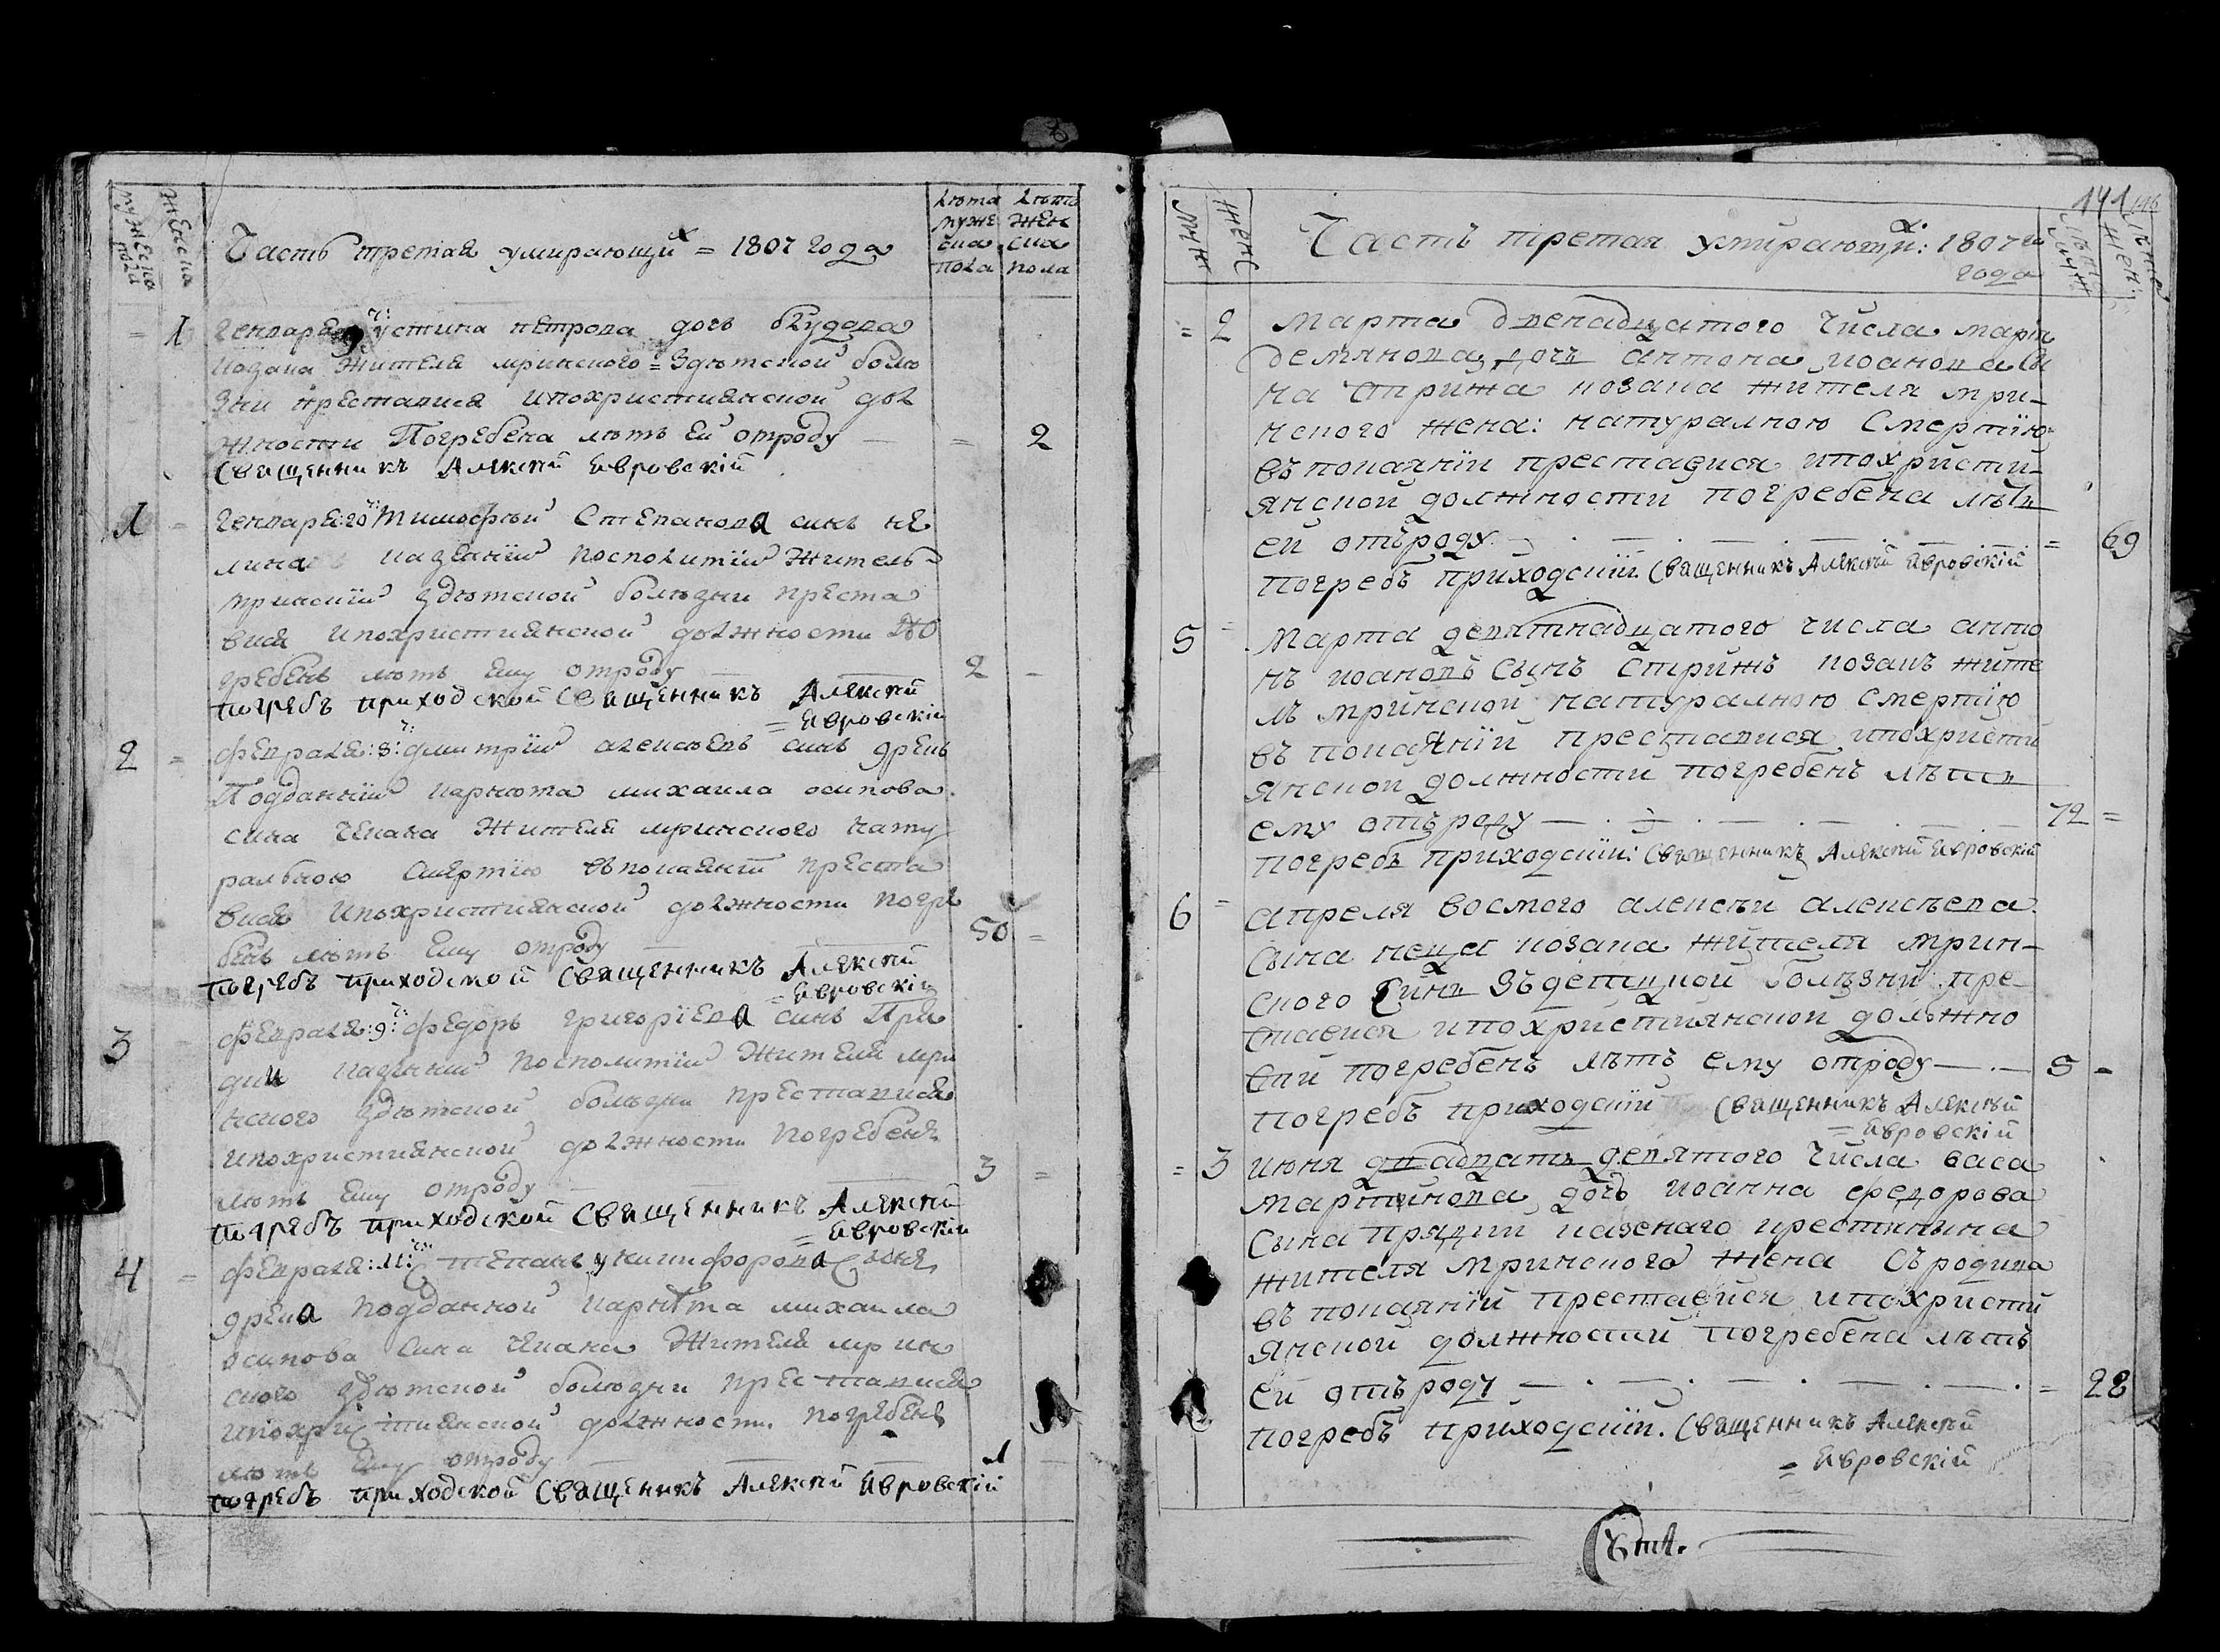 мужеска пола
женска
Часть третая умирающих = 1807 года
лѣта мужеска пола
лѣта женска пола
= 1 генваря 9 ч: устина петрова дочь
козака жителя мринского = здѣтской болѣ
зни преставися ипохристиянской дол
жности Погребена лѣтъ ей отроду — = 2
Священникъ Алексѣй Явровскій
1 = генваря: 20 ч: Тимофѣй Степанова синъ
казеній посполитій житель
мринскій здѣтской болѣзни преста
вися ипохристиянской должности по
гребенъ лѣтъ ему отроду — 2 -
погребъ приходской Священникъ Алексѣй
= Явровскій
2 = февраля: 8: ч: дмитрій алексѣевъ синъ
Подданній михаила осипова
сина жителя мринского нату
ральною смертію впокаяніи преста
вися ипохристиянской должности погре
бенъ лѣтъ ему отроду — 50 =
погребъ приходской Священникъ Алексѣй
= Явровскій
3 февраля: 9: ч: федоръ григоріева синъ При
дии казенній посполитій жителя мри
нского здѣтской болѣзни преставися
ипохристиянской должности погребенъ
лѣтъ ему отроду — 3 =
погребъ приходской Священникъ Алексѣй
= Явровскій
4 = февраля: 11: ч: Степанъ никифорова синъ
подданной михаила
осипова сина жителя мрин
ского здѣтской болѣзни преставися
ипохристиянской должности погребенъ
лѣтъ ему отроду — 1 —
погребъ приходской Священникъ Алексѣй Явровскій
141
муж
женс
Часть третая умирающих: 1807 го
года
= 2 Марта двенадцатого числа
демянова дочъ антона иоанова сы
на Стрижа козака жителя мри-
нского жена: натуралною смертїю
въ покаянїи преставися ипохристи-
янской должности погребена лѣть
ей отъроду — = 69
погребъ приходскїй Священникъ Алексѣй Явровскій
5 = Марта девятнадцатого числа анто
нъ иоановъ Сынъ Стрижъ козакъ жите
лъ мринской натуралною смертїю
въ покаянїи преставися ипохристи
янской должности погребенъ лѣть
ему отъроду — 72 =
погребъ приходскїй: Священникъ Алексѣй Явровскій
6 = апреля восмого алексѣй алексѣева
Сына козака жителя мрин-
ского Синъ Зъдетцкой болѣзни пре-
ставися ипохристиянской должно
сти погребенъ лѣтъ ему отроду — 5 -
погребъ приходскїй Священникъ Алексѣй
= Явровскій
= 3 июня двадцать девятого числа васа
мартинова дочъ иоанна федорова
Сына прядки казенаго крестянина
жителя мринского жена Съродива
въ покаянїи преставися ипохристи
янской должности погребена лѣтъ
ей отъроду — = 28
погребъ приходскїй. Священникъ Алексѣй
= Явровскій